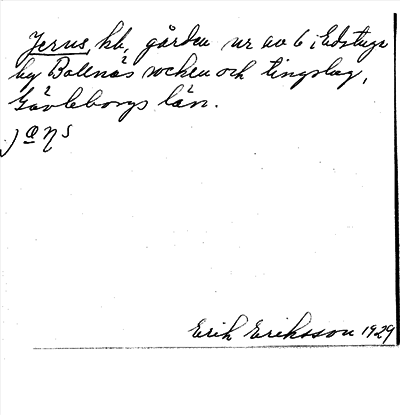 Jerus, hb, gården nr av 6 i Edstuga
by Bollnäs socken och tingslag,
Gävleborgs län.
Erik Eriksson 1929